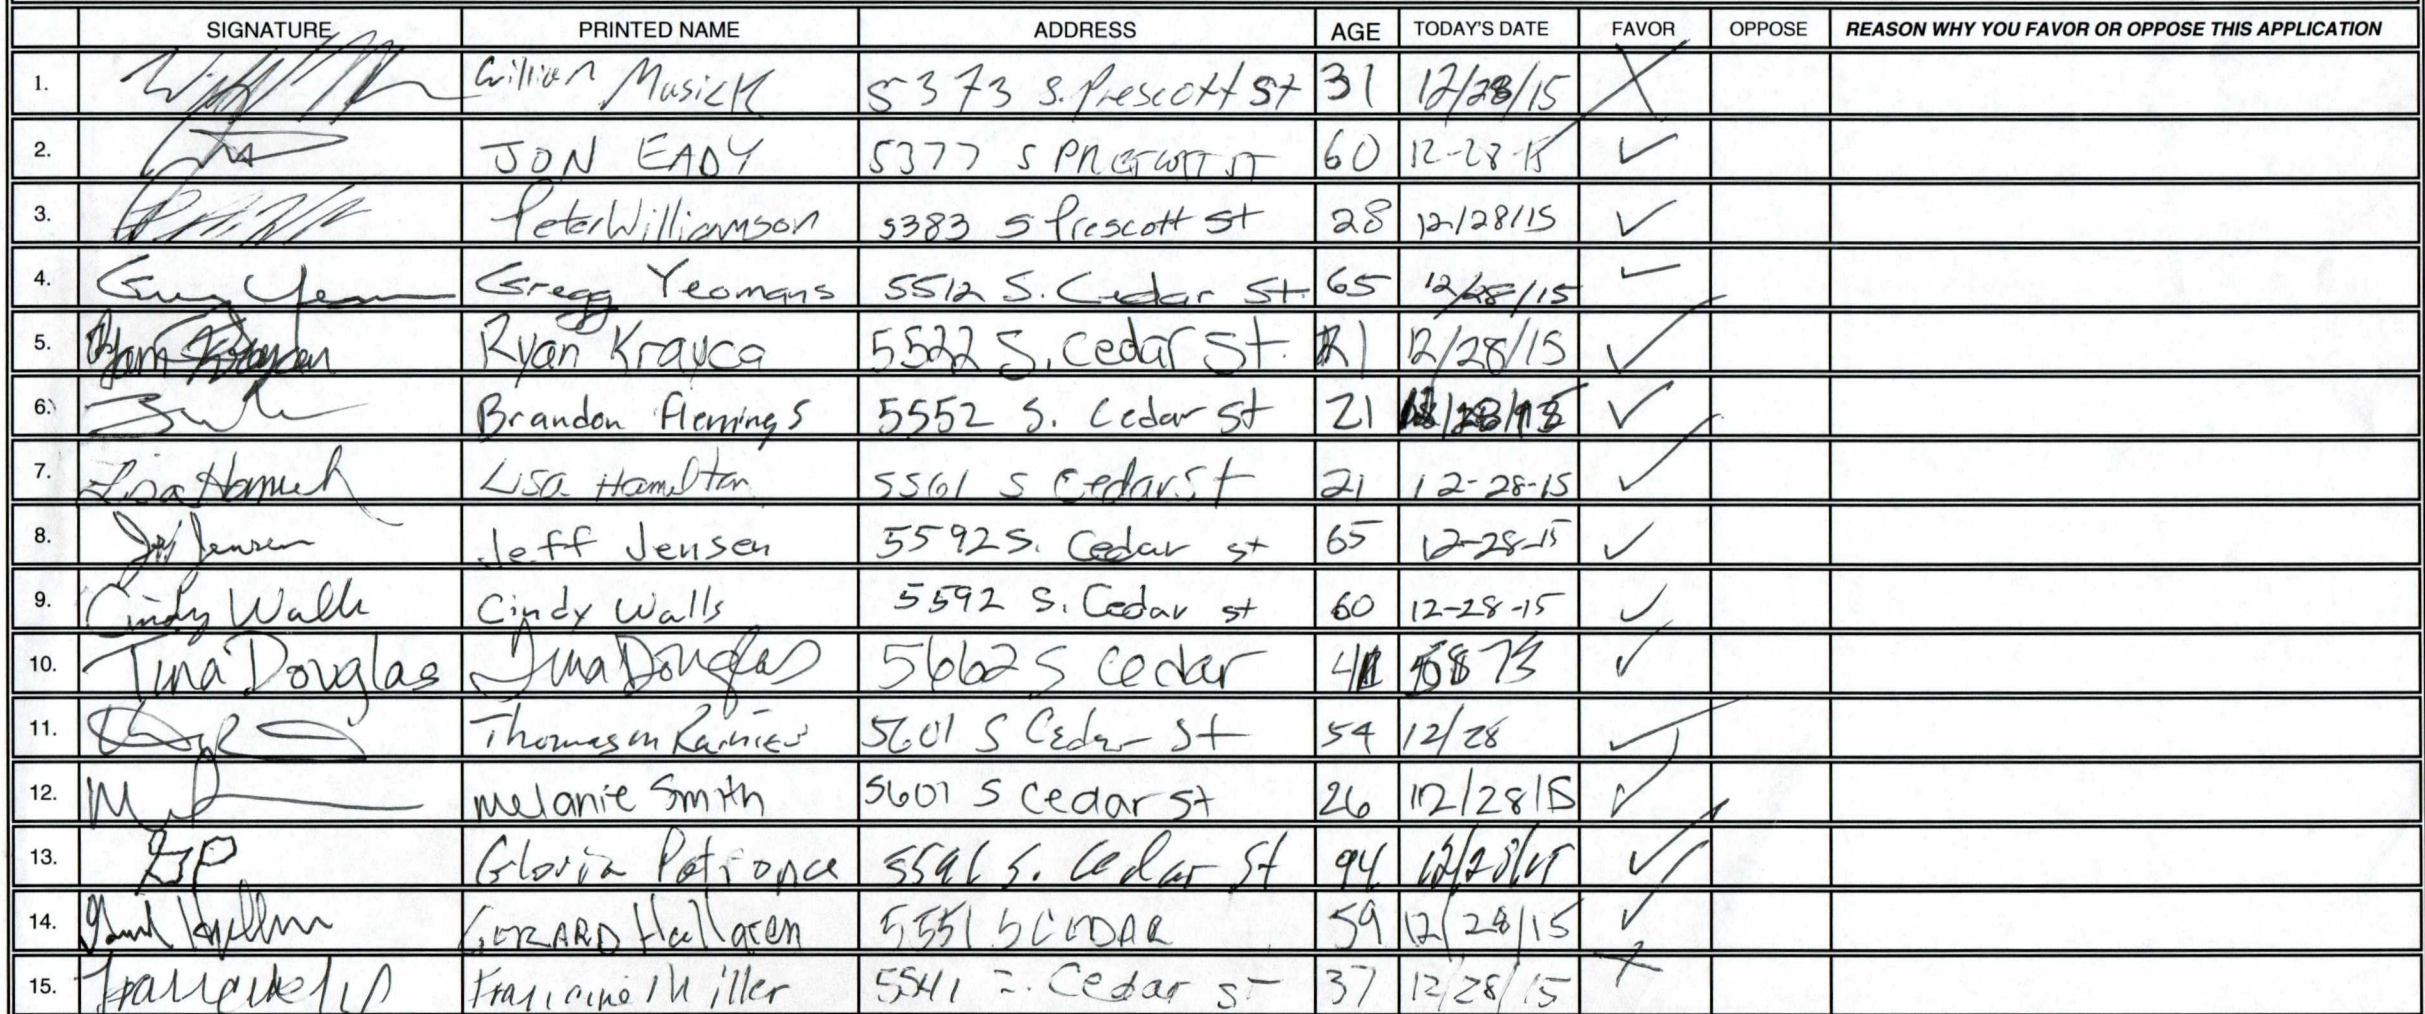 SIGNATURE PRINTED NAME ADDRESS AGE TODAY'S DATE FAVOR OPPOSE REASON WHY YOU FAVOR OR OPPOSE THIS APPLICATION
1. William Musick 5373 S. Prescott St 31 12/28/15
2. JON EADY 5377 S PRESCOTT ST 60 12-28-15 ✓
3. Peter Williamson 5383 S Prescott St 28 12/28/15 ✓
4. Gregg Yeomans 5512 S. Cedar St. 65 12/28/15
5. Ryan Krayca 5522 S. Cedar St. 12/28/15 ✓
6. Brandon Flemings 5552 S. Cedar St 21 ✓
7. Lisa Hamilton 5561 S Cedar St 21 12-28-15 ✓
8. Jeff Jensen Jeff Jensen 5592 S. Cedar st 65 12-28-15 ✓
9. Cindy Walls Cindy Walls 5592 S. Cedar st 60 12-28-15 ✓
10. Tina Douglas Tina Douglas 5662 S Cedar ✓
11. Thomas m 5601 S Cedar St 54 12/28 ✓
12. Melanie Smith 5601 S Cedar St 26 12/28/15 ✓
13. GP Gloria 5591 S. Cedar St 94 12/28/15 ✓
14. GERARD Hallgren 5551 S CEDAR 59 12/28/15 ✓
15. Francine Miller 5541 S. Cedar St 37 12/28/15